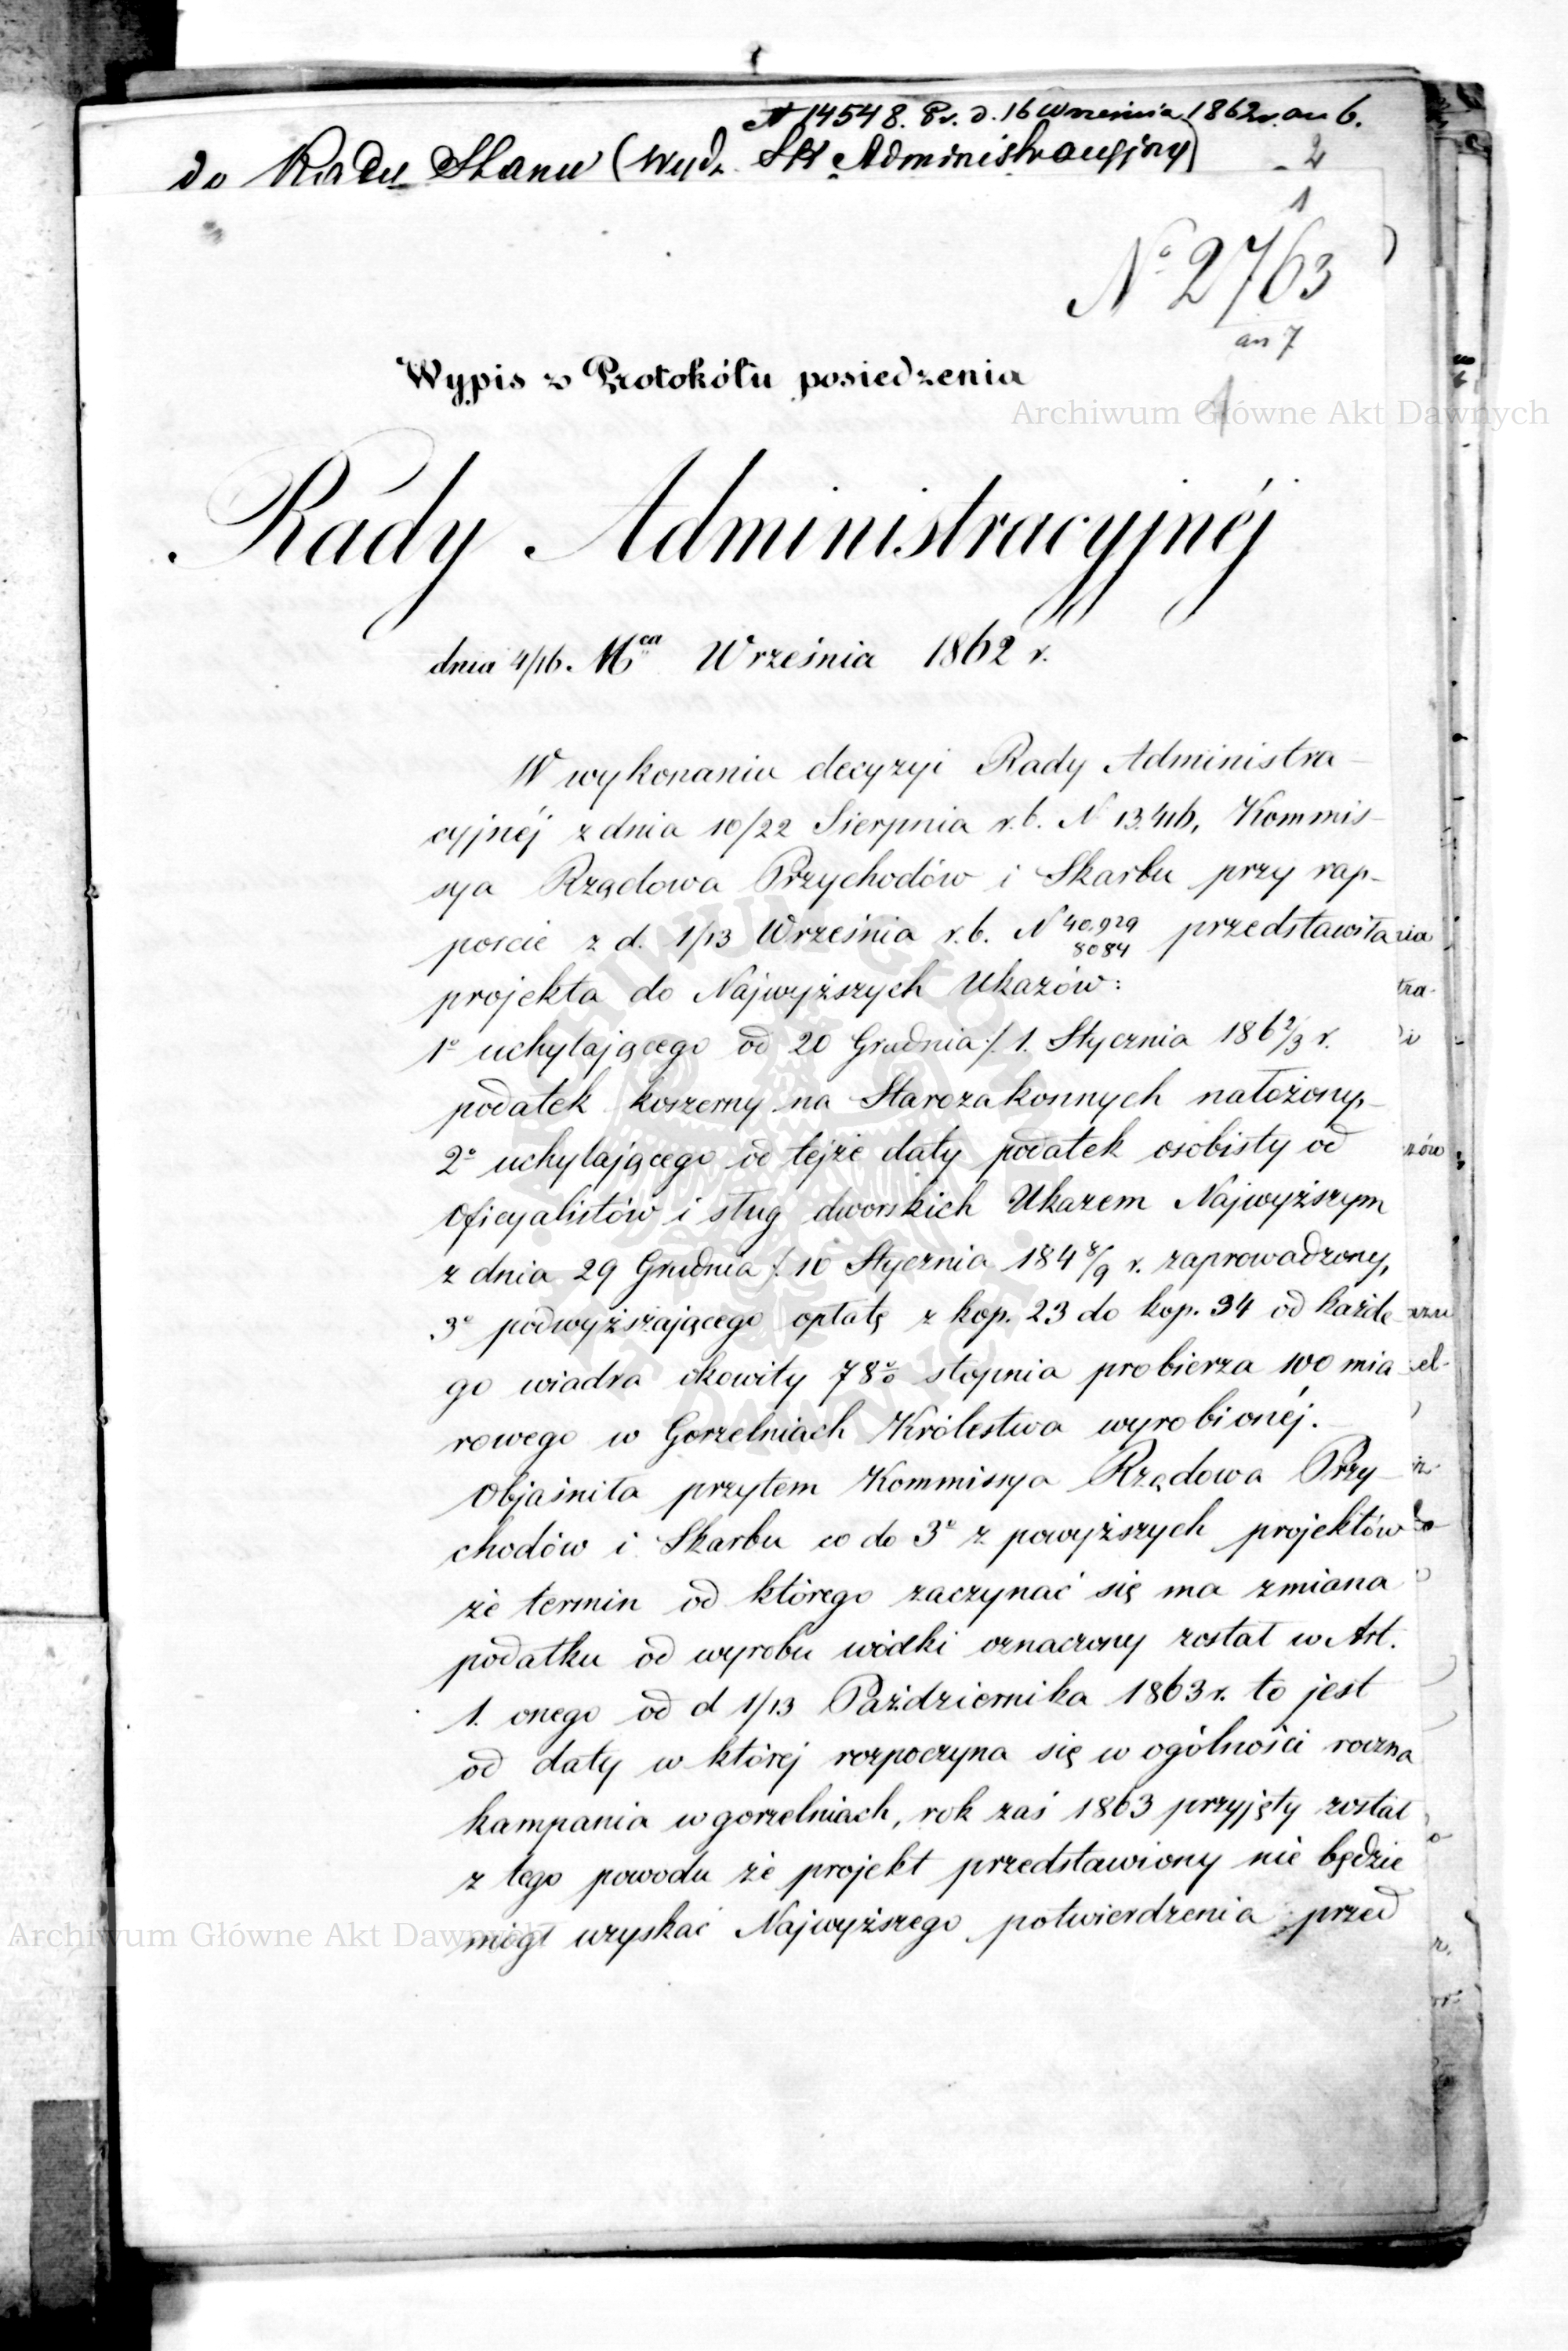 N 14548. Pr. d. 16 Września 1862 r. an 6.
do Rady Stanu (Wydz. Skr. Administracyjny)
2
1
No 2763
an 7
Wypis z Protokółu posiedzenia
Archiwum Główne Akt Dawnych
Rady Administracyjnéj
dnia 4/16. Mca Września 1862 r.
W wykonaniu decyzyi Rady Administra-
cyjnéj z dnia 10/22 Sierpnia r.b. N 13.416, Kommis-
sya Rządowa Przychodów i Skarbu przy rap-
porcie z d. 1/13 Września r.b. N 40.929/8084 przedstawiła
projekta do Najwyższych Ukazów:
1o uchylającego od 20 Grudnia /. 1. Stycznia 186 2/3 r.
podatek koszerny na Starozakonnych nałożony,
2o uchylającego od tejże daty podatek osobisty od
Oficyalistów i sług dworskich Ukazem Najwyższym
z dnia 29 Grudnia /. 10 Stycznia 184 8/9 r. zaprowadzony,
3o podwyższającego opłatę z kop. 23 do kop. 34 od każde-
go wiadra okowity 78% stopnia probierza 100 mia-
rowego w Gorzelniach Królestwa wyrobionéj.
Objaśniła przytem Kommissya Rządowa Przy-
chodów i Skarbu co do 3o z powyższych projektów
że termin od którego zaczynać się ma zmiana
podatku od wyrobu wódki oznaczony został w Art.
1. onego od d 1/13 Października 1863 r. to jest
od daty w któréj rozpoczyna się w ogólności roczna
kampania w gorzelniach, rok zaś 1863 przyjęty został
z tego powodu że projekt przedstawiony nie będzie
mógł uzyskać Najwyższego potwierdzenia przed
Archiwum Główne Akt Dawnych